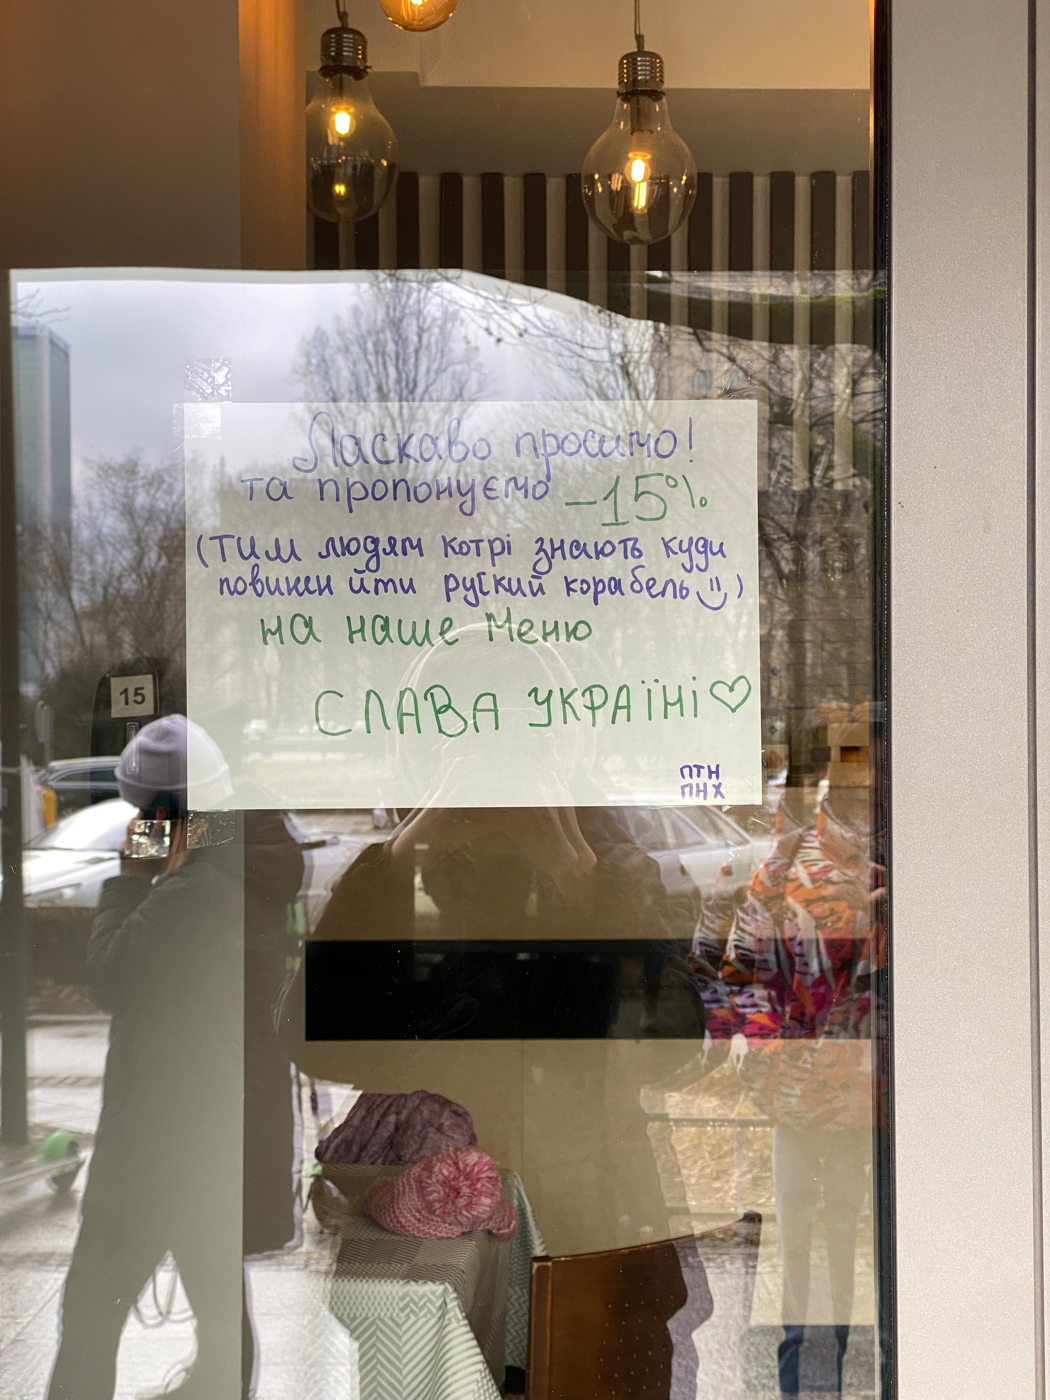 Ласкаво просимо!
та пропонуємо -15%
(тим людям котрі знають куди
повинен йти руский корабель)
на наше меню
СЛАВА УКРАЇНІ♡
ПТН
ПНХ
15